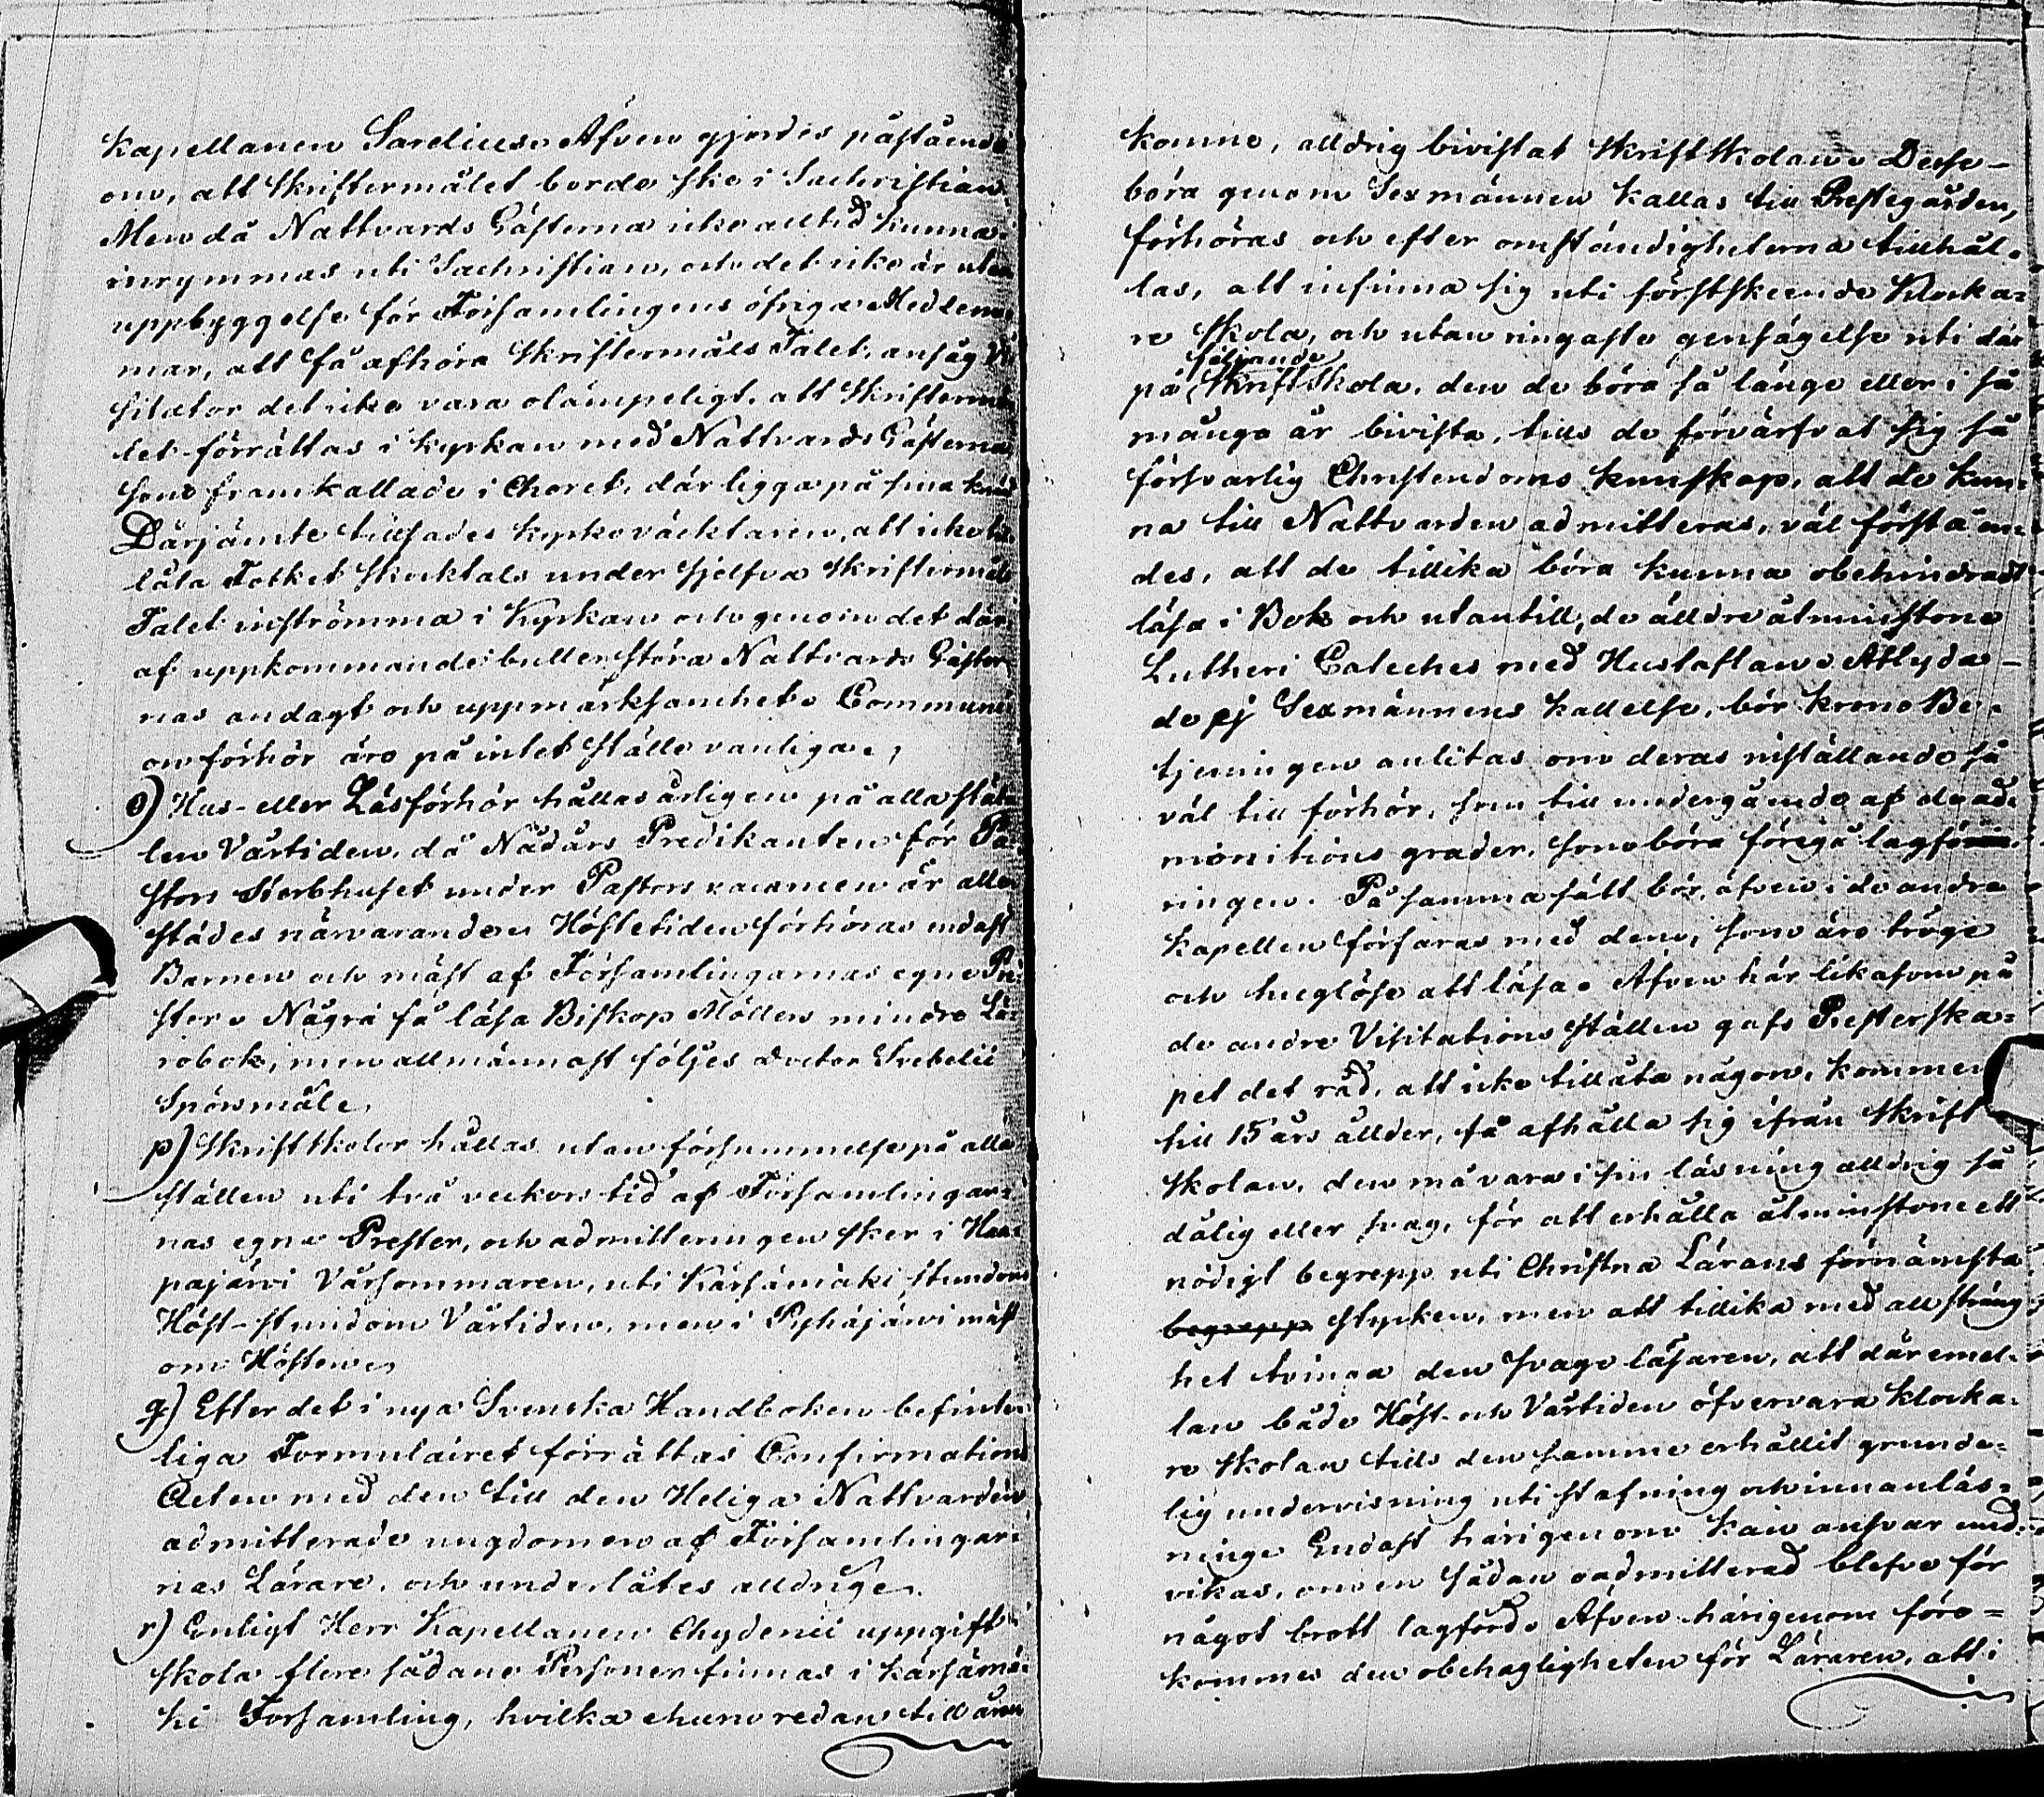 Kapellanen Sarelius. Äfven gjordes påstående
om, att Skriftermålet borde ske i Sachristian.
Men då Nattvards Gästerna icke alltid kunna
inrymmas uti Sachristian, och det icke är utan
uppbyggelse för Församlingens öfriga Medlem-
mar, att få afhöra Skriftermåls Talet, ansåg Vi
sitator det icke vara olämpeligt, att Skriftermå
let förrättas i Kyrkan med Nattvards Gästerna
som framkallade i Choret, där ligga på sina knän
Därjämte tillsades kyrkoväcktaren, att icke till
låta Folket Skocktals under sjelfva Skriftermåls
Talet inströmma i Kyrkan och genom det där
af uppkommande buller störa Nattvards Gäster
nas andagt och uppmärksamhet. Communi
on förhör äro på intet ställe vanliga.
o) Hus- eller Läsförhör hållas årligen på alla stäl
len Vårtiden, då Nådårs Predikanten för Pa
stors Sterbhuset under Pastors vacancen är alle
städes närvarande. Höstetiden förhöras endast
Barnen och mäst af Församlingarnas egne Pre
ster. Några få läsa Biskop Möllers mindre Lä
robok, men allmännast följes Doctor Svebelii
Spörsmåle.
p) Skriftskolor hållas utan försummelse på alla
ställen uti två veckors tid af Församlingar-
nas egna Prester, och admitteringen sker i Haa-
pajärvi Vårsommaren, uti Kärsämäki stundom
Höst- stundom Vårtiden, men i Pyhäjärvi mäst
om Hösten.
q) Efter det i nya Svenska Handboken befinte-
liga Formulairet förrättas Confirmations
Acten med den till den Heliga Nattvarden
admitterade ungdomen af Församlingar-
nas Lärare, och underlåtes alldrig.
r) Enligt Herr Kapellanen Chydenii uppgift
skola flere sådane Personer finnas i Kärsämä-
ki Församling, hvilka ehuru redan till åren
komne, alldrig bivistat Skriftskolan. Desse-
böra genom Sexmännen kallas till Prestegården,
förhöras och efter omständigheterna tillhål-
las, att infinna sig uti förstskeende Klocka-
re Skola, och utan ringaste gensägelse uti där
följande
på Skriftskola, den de böra så länge eller i så
många år bivista, tills de förvärfvat sig så
försvarlig Christendoms kunskap, att de kun-
na till Nattvarden admitteras, väl förståen-
des, att de tillika böra kunna obehindradt
läsa i Bok och utantill, de älldre åtminstone
Lutheri Cateches med Hustaflan. Åtlyda-
de ej Sexmännens kallelse, bör Krono Be-
tjeningen anlitas om deras inställande så
väl till förhör, som till undergående af de ad-
monitions grader, som böra föregå lagfö
ringen. På samma sätt bör, äfven i de andra
Kapellen förfaras med dem, som äro tröge
och huglöse att läsa. Äfven här likasom på
de andre Visitations ställen gafs Presterska-
pet det råd, att icke tillåta någon, kommen
till 15 års ållder, få afhålla sig ifrån Skrift
skolan, den må vara i sin läsning alldrig så
dålig eller svag, för att erhålla åtminstone ett
nödigt begrepp uti Christna Lärans förnämsta
begrepp stycken, men att tillika med all sträng
het tvinga den svage läsaren, att däremel-
lan både Höst- och Vårtiden öfvervara Klocka-
re skolan tills den samme erhållit grunde-
lig undervisning uti stafning och innanläs-
ning. Endast härigenom kan ansvar und-
vikas, om en sådan oadmitterad blefve för
något brott lagförd. Äfven härigenom före-
kommes den obehagligheten för Läraren, att i